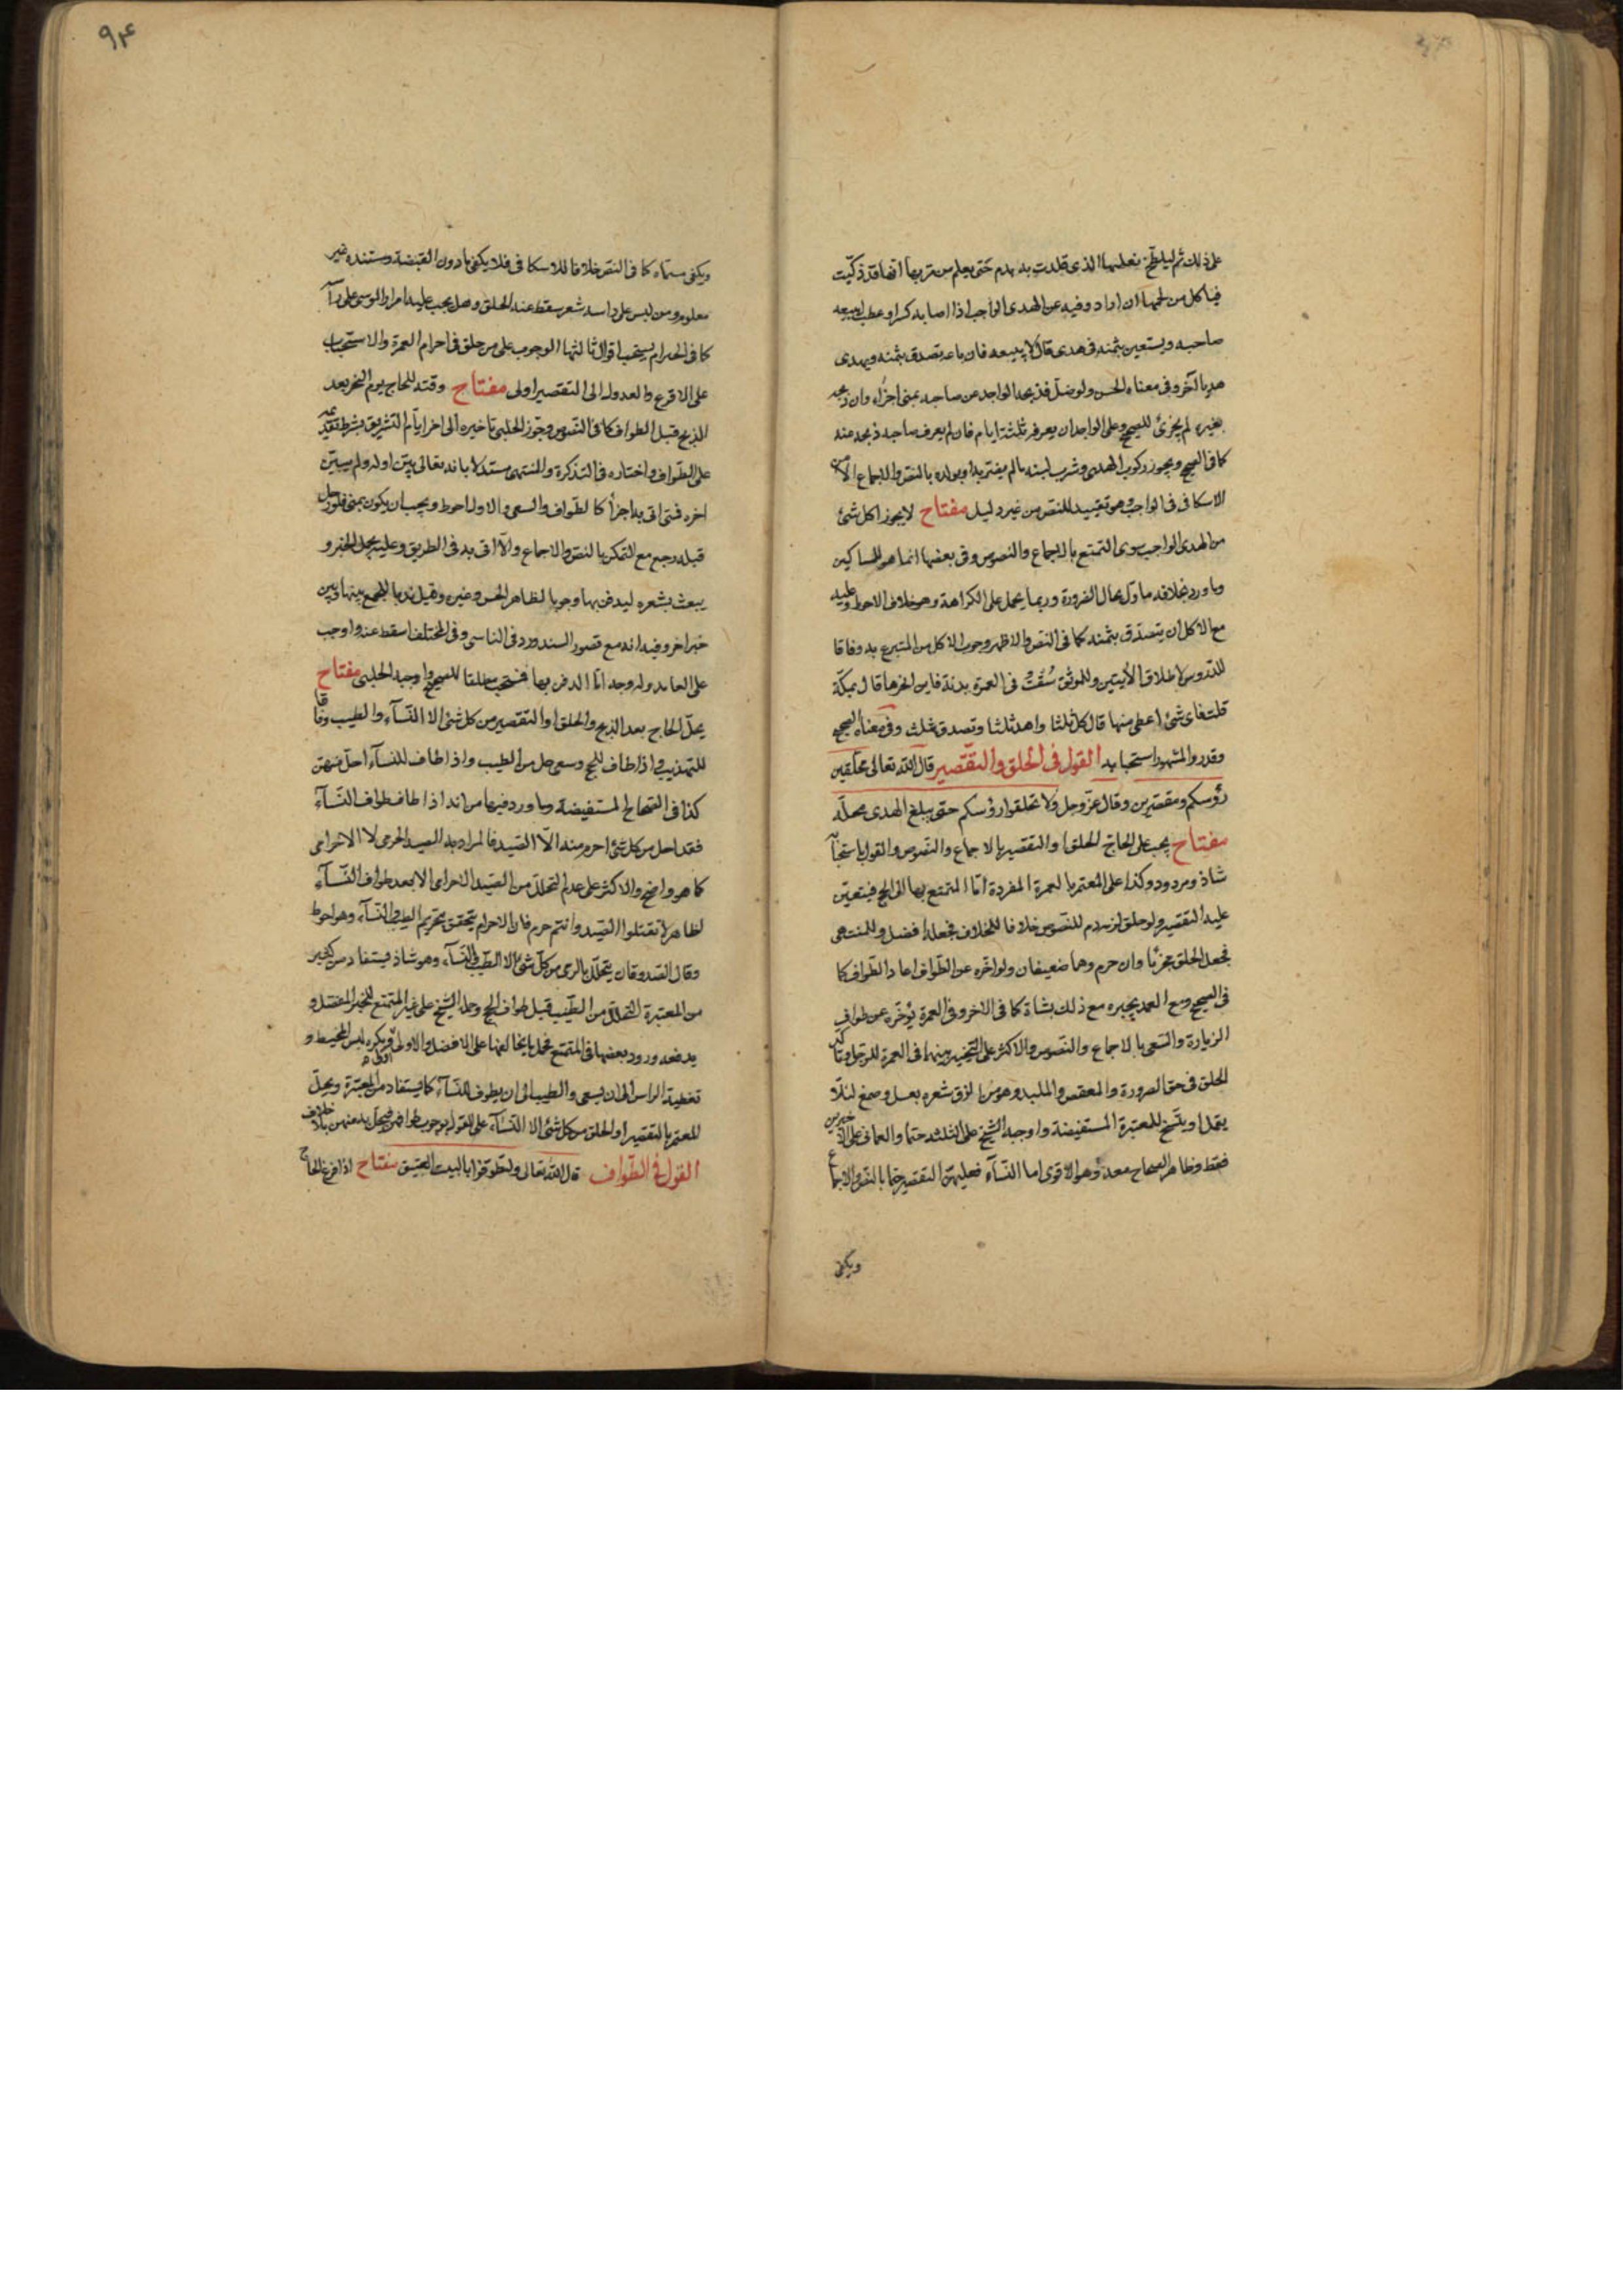 على ذلك ثم ليلطخ نعلها الذى قلدت به بدم حتى يعلم من مر بها انها قد ذكيت
فياكل من لحمها ان اراد وفيه عن الهدى الواجب اذا اصابه كسر او عطب ايبيعه
صاحبه ويستعين بثمنه فى هدى قال لا يبيعه فان باعه تصدق بثمنه ويهدى
هديا آخر وفى معناه الحسن ولو ضل فذبحه الواجد عن صاحبه بمنى اجزاه وان ذبحه
بغيره لم يجزئ للصحيح وعلى الواجد ان يعرفه ثلثة ايام فان لم يعرف صاحبه ذبحه عنه
كما فى الصحيح ويجوز ركوب الهدى وشرب لبنه ما لم يضر به او بولده بالنص والاجماع الا من
الاسكافى فى الواجب وهو تقييد للنص من غير دليل مفتاح لا يجوز اكل شئ
من الهدى الواجب سوى التمتع بالاجماع والنصوص وفى بعضها انما هو للمساكين
وما ورد بخلافه ماول بحال الضرورة وربما يحمل على الكراهة وهو خلاف الاحوط وعليه
مع الاكل ان يتصدق بثمنه كما فى النص والاظهر وجوب الاكل من المتبرع به وفاقا
للدروس لاطلاق الآيتين وللموثق سقت فى العمرة بدنة فاين انحرها قال بمكة
قلت فاى شئ اعطى منها قال كل ثلثا واهد ثلثا وتصدق بثلث وفى معناه الصحيح
وقدر والمشهور استحبابه القول فى الحلق والتقصير قال الله تعالى محلقين
رؤسكم ومقصرين وقال عز وجل ولا تحلقوا رؤسكم حتى يبلغ الهدى محله
مفتاح يجب على الحاج الحلق او التقصير بالاجماع والنصوص والقول باستحبابه
شاذ ومردود وكذا على المعتمر بالعمرة المفردة اما المتمتع بها الى الحج فيتعين
عليه التقصير ولو حلق لزمه دم للنصوص خلافا للخلاف فجعله افضل وللمنتهى
فجعل الحلق مجزئا وان حرم وهما ضعيفان ولو اخره عن الطواف اعاد الطواف كما
فى الصحيح ومع العمد يجبره مع ذلك بشاة كما فى الاخر وفى العمرة يؤخره عن طواف
الزيارة والسعى بالاجماع والنصوص والاكثر على التخيير بينهما فى العمرة للرجل وتاكد
الحلق فى حق الصرورة والمعقص والملبد وهو من الزق شعره بعسل وصمغ لئلا
يقمل او يتسخ للمعتبرة المستفيضة واوجبه الشيخ على الثلثة حتما والعمانى على الاخيرين
فقط وظاهر الصحاح معه وهو الاقوى اما النساء فعليهن التقصير حتما بالنص والاجماع
ويكفى
٩٤
ويكفى مسماه كما فى النص خلافا للاسكافى فلا يكفى ما دون القبضة ومستنده غير
معلوم ومن ليس على راسه شعر سقط عنه الحلق وهل يجب عليه امرار الموسى على راسه
كما فى الخبر ام يستحب اقوال ثالثها الوجوب على من حلق فى احرام العمرة والاستحباب
على الاقرع والعدول الى التقصير اولى مفتاح وقته للحاج يوم النحر بعد
الذبح قبل الطواف كما فى النصوص وجوز الحلبى تاخيره الى اخر ايام التشريق بشرط تقديمه
على الطواف واختاره فى التذكرة والمنتهى مستدلا بانه تعالى بين اوله ولم يبين
اخره فمتى اتى به اجزأ كالطواف والسعى والاول احوط ويجب ان يكون بمنى فلو رحل
قبله رجع مع التمكن بالنص والاجماع والا اتى به فى الطريق وعليه يحمل الخبر و
يبعث بشعره ليدفن بها وجوبا لظاهر الحسن وغيره وقيل ندبا للجمع بينها وبين
خبر اخر وفيه انه مع قصور السند ورد فى الناسى وفى المختلف اسقط عنه واوجب
على العامد وله وجه اما الدفن بها فمستحب مطلقا للصحيح واوجبه الحلبى مفتاح
يحل الحاج بعد الذبح والحلق او التقصير من كل شئ الا النساء والطيب وفاقا
للتهذيب واذا طاف للحج وسعى حل من الطيب واذا طاف للنساء احل منهن
كذا فى الصحاح المستفيضة وما ورد فيها من انه اذا طاف طواف النساء
فقد احل من كل شئ احرم منه الا الصيد فالمراد به الصيد الحرمى لا الاحرامى
كما هو واضح والاكثر على عدم التحلل من الصيد الاحرامى الا بعد طواف النساء
لظاهر لا تقتلوا الصيد وانتم حرم فان الاحرام يتحقق بتحريم الطيب والنساء وهو احوط
وقال الصدوقان يتحلل بالرمى من كل شئ الا الطيب والنساء وهو شاذ ويستفاد من كثير
من المعتبرة التحلل من الطيب قبل طواف الحج وحمله الشيخ على غير المتمتع للخبر المفصل و
يدفعه ورود بعضها فى المتمتع فحمل ما يخالفها على الافضل والاولى اولى ويكره لبس المخيط و
تغطية الراس الى ان يسعى والطيب الى ان يطوف للنساء كما يستفاد من المعتبرة ويحل
المعتمر بالتقصير او الحلق من كل شئ الا النساء على القول بوجوب طوافهن فيحل به منهن بلا خلاف
القول فى الطواف قال الله تعالى وليطوفوا بالبيت العتيق مفتاح اذا فرغ الحاج